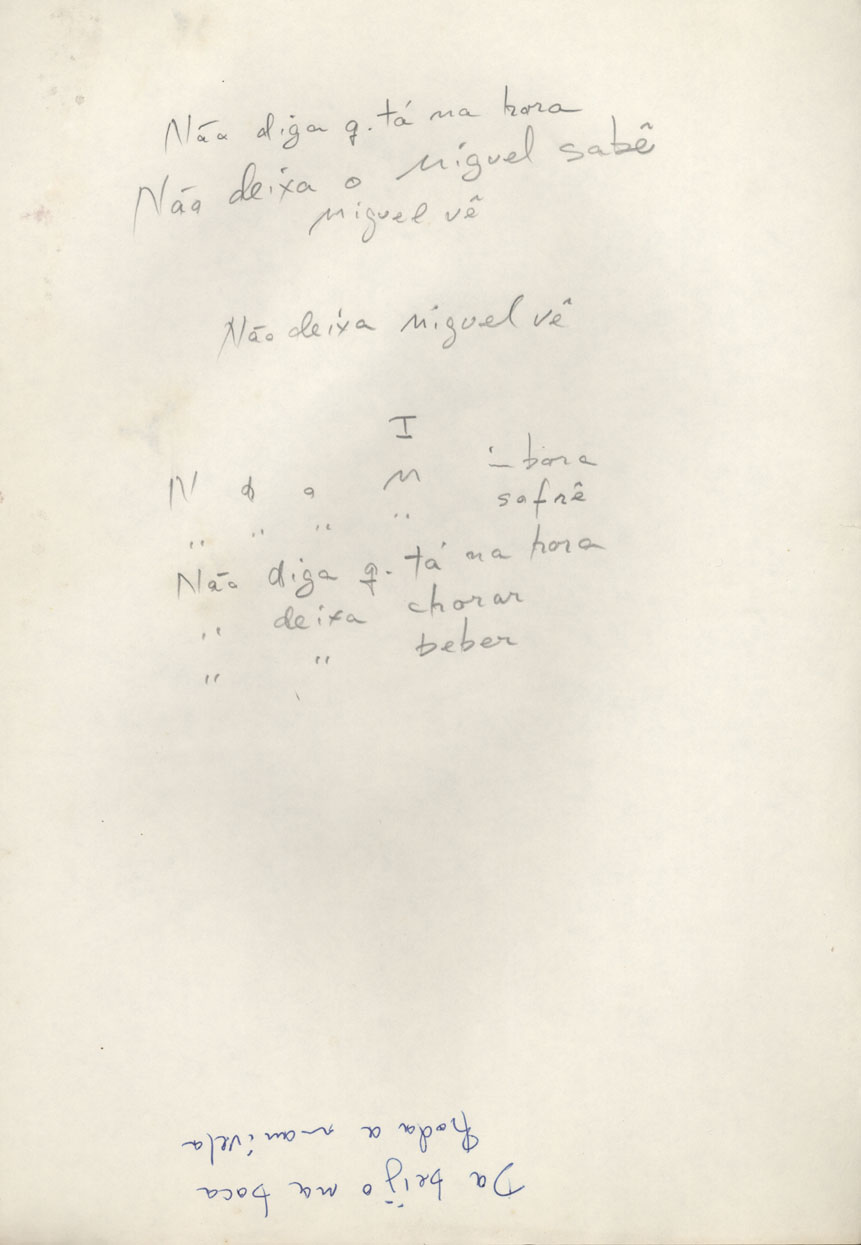 Não diga q. tá na hora
Não deixa o Miguel sabê
Miguel vê
Não deixa Miguel vê
I
N d o M ir bora
" " " " sofrê
Não diga q. tá na hora
" deixa chorar
" " beber
Da beijo na boca
Roda a manivela